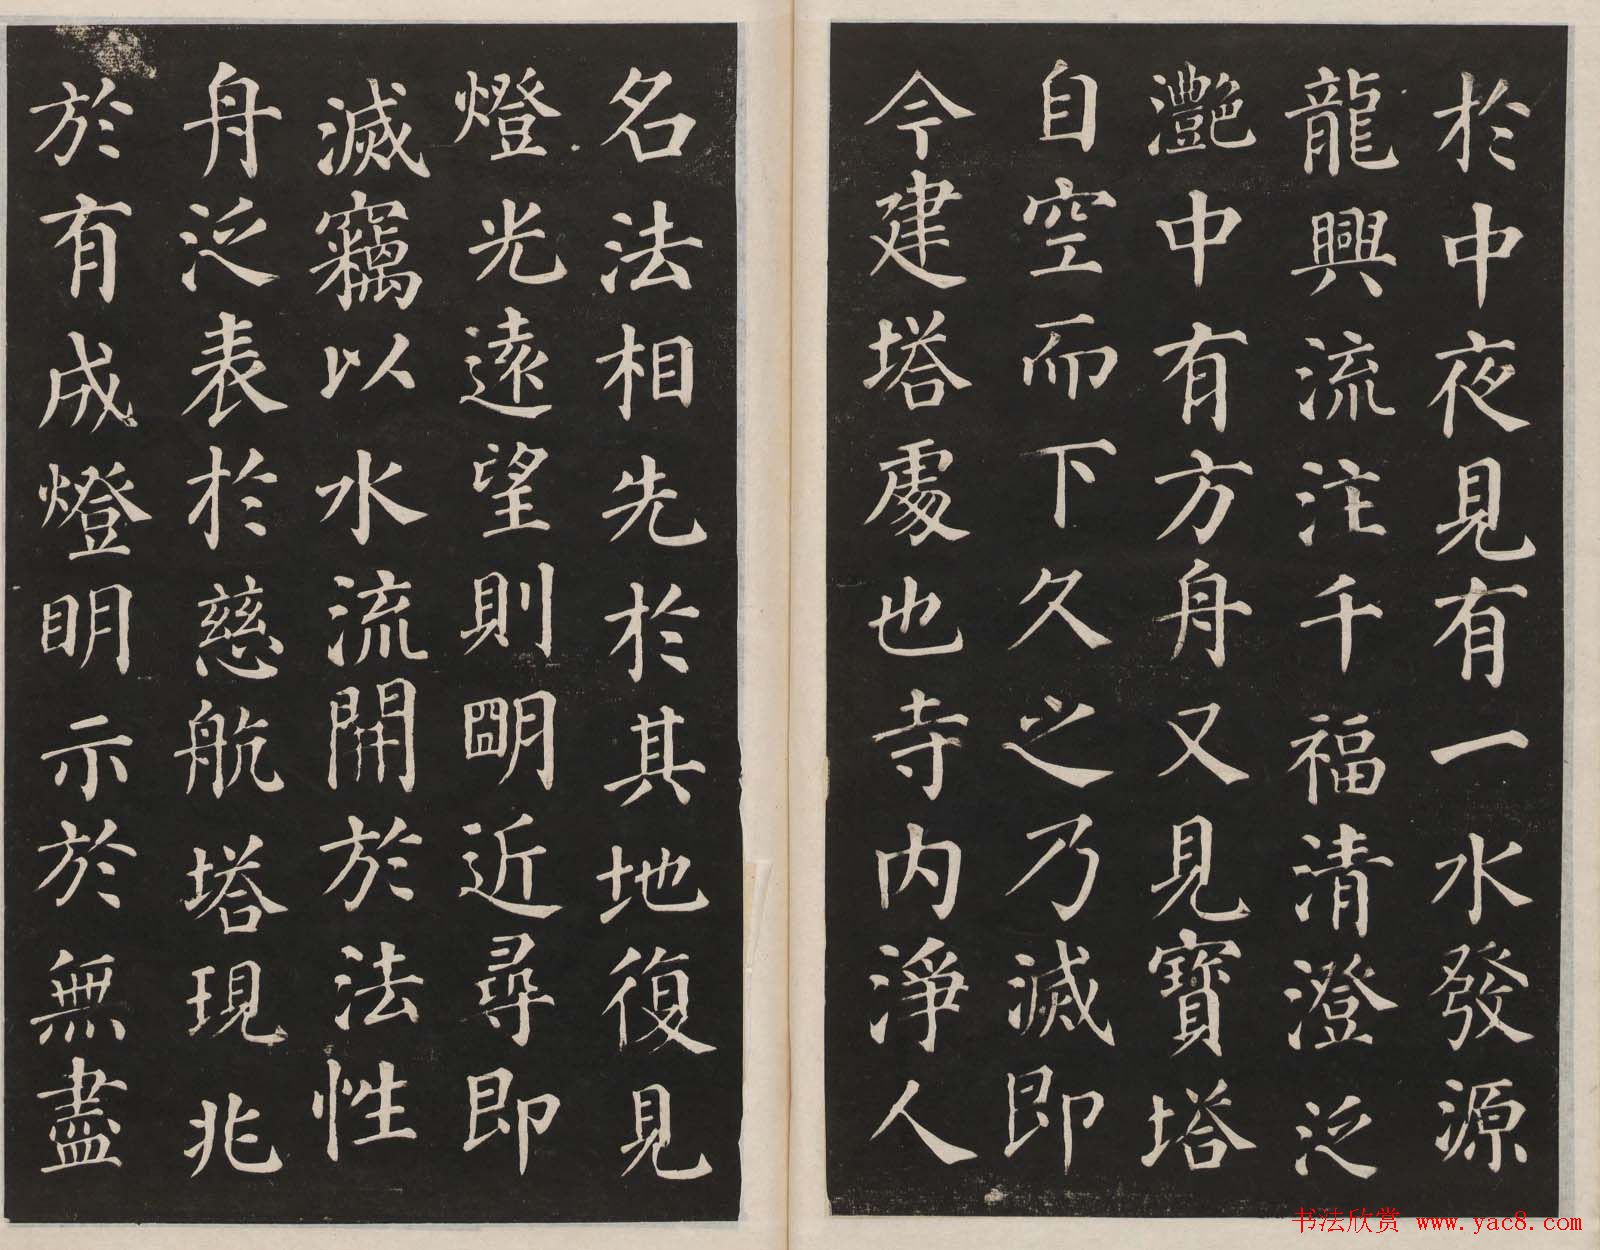 於中夜見有一水發源
龍興流注千福清澄泛
灩中有方舟又見寶塔
自空而下久之乃滅即
今建塔處也寺內淨人
名法相先於其地復見
燈光遠望則明近尋即
滅竊以水流開於法性
舟泛表於慈航塔現兆
於有成燈明示於無盡
书法欣赏 www.yac8.com